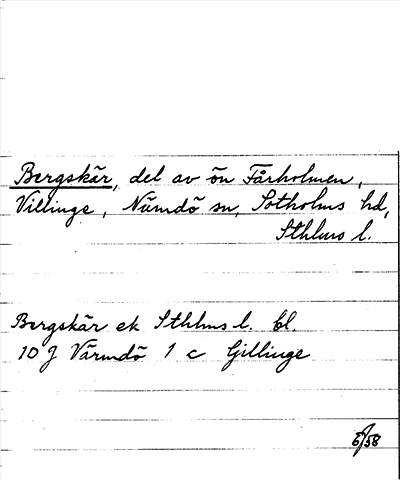 Bergskär, del av ön Fårholmen,
Villinge, Nämdö sn, Sotholms hd,
Sthlms l.
Bergskär ek Sthlms l. bl.
10 J Värmdö 1 c Gillinge
6/58